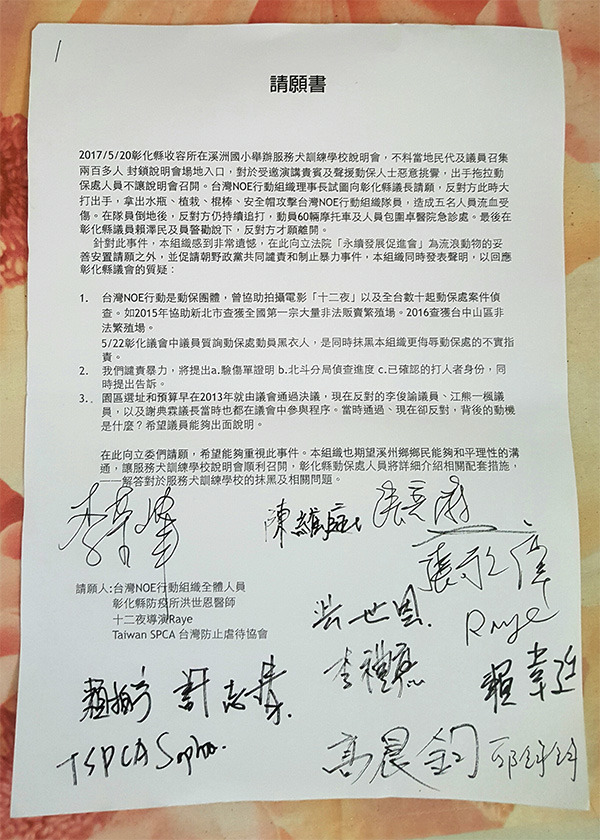 請願書
2017/5/20彰化縣收容所在溪洲國小舉辦服務犬訓練學校說明會，不料當地民代及議員召集
兩百多人 封鎖說明會場地入口，對於受邀演講貴賓及聲援動保人士惡意挑釁，出手拖拉動
保處人員不讓說明會召開。台灣NOE行動組織理事長試圖向彰化縣議員請願，反對方此時大
打出手，拿出水瓶、植栽、棍棒、安全帽攻擊台灣NOE行動組織隊員，造成五名人員流血受
傷。在隊員倒地後，反對方仍持續追打，動員60輛摩托車及人員包圍卓醫院急診處。最後在
彰化縣議員賴澤民及員警勸說下，反對方才願離開。
針對此事件，本組織感到非常遺憾，在此向立法院「永續發展促進會」為流浪動物的妥
善安置請願之外，並促請朝野政黨共同譴責和制止暴力事件，本組織同時發表聲明，以回應
彰化縣議會的質疑：
1. 台灣NOE行動是動保團體，曾協助拍攝電影「十二夜」以及全台數十起動保處案件偵
查。如2015年協助新北市查獲全國第一宗大量非法販賣繁殖場。2016查獲台中山區非
法繁殖場。
5/22彰化議會中議員質詢動保處動員黑衣人，是同時抹黑本組織更侮辱動保處的不實指
責。
2. 我們譴責暴力，將提出a.驗傷單證明 b.北斗分局偵查進度 c.已確認的打人者身份，同
時提出告訴。
3. 園區選址和預算早在2013年就由議會通過決議，現在反對的李俊諭議員、江熊一楓議
員，以及謝典霖議長當時也都在議會中參與程序。當時通過、現在卻反對，背後的動機
是什麼？希望議員能夠出面說明。
在此向立委們請願，希望能夠重視此事件。本組織也期望溪州鄉鄉民能夠和平理性的溝
通，讓服務犬訓練學校說明會順利召開，彰化縣動保處人員將詳細介紹相關配套措施，
一一解答對於服務犬訓練學校的抹黑及相關問題。
請願人:台灣NOE行動組織全體人員
彰化縣防疫所洪世恩醫師
十二夜導演Raye
Taiwan SPCA 台灣防止虐待協會
Raye
高晨鈞
TSPCA